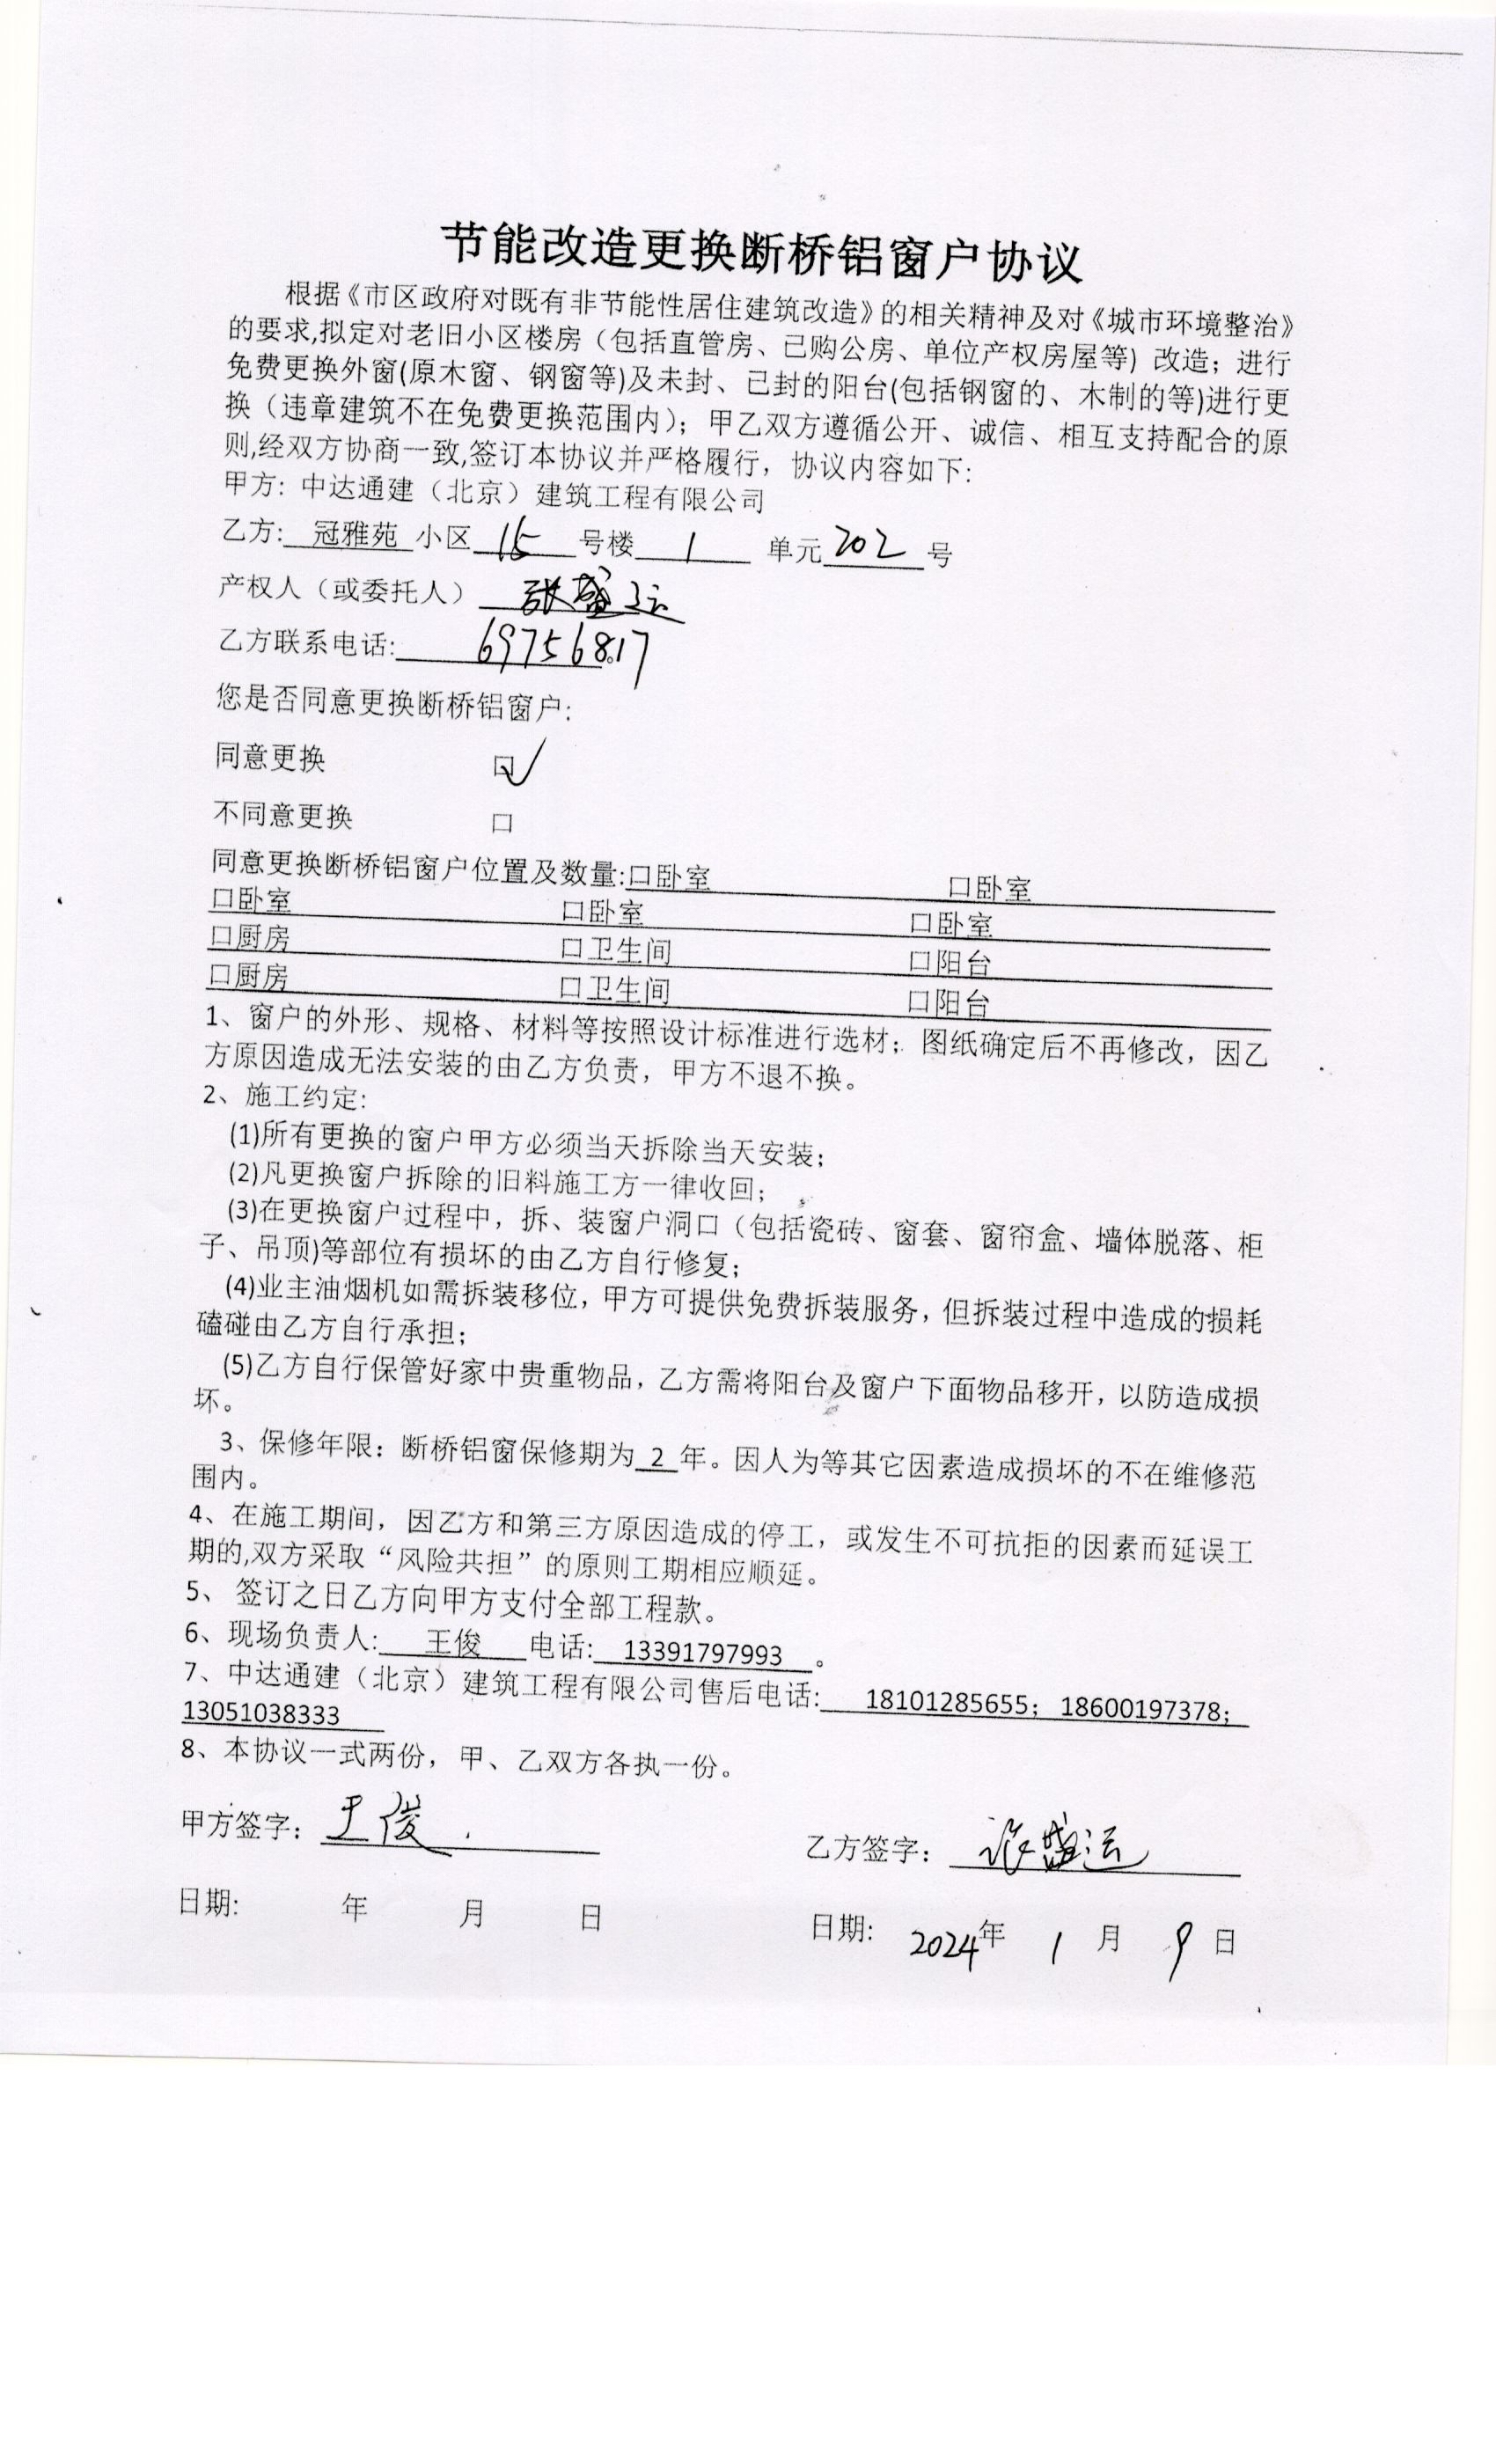 节能改造更换断桥铝窗户协议
根据《市区政府对既有非节能性居住建筑改造》的相关精神及对《城市环境整治》
的要求,拟定对老旧小区楼房（包括直管房、已购公房、单位产权房屋等）改造；进行
免费更换外窗(原木窗、钢窗等)及未封、已封的阳台(包括钢窗的、木制的等)进行更
换（违章建筑不在免费更换范围内）；甲乙双方遵循公开、诚信、相互支持配合的原
则,经双方协商一致,签订本协议并严格履行，协议内容如下:
甲方: 中达通建（北京）建筑工程有限公司
乙方: 冠雅苑 小区 15 号楼 1 单元 202 号
产权人（或委托人） 张盛运
乙方联系电话: 69756817
您是否同意更换断桥铝窗户:
同意更换 口√
不同意更换 口
同意更换断桥铝窗户位置及数量:口卧室 口卧室
口卧室 口卧室 口卧室
口厨房 口卫生间 口阳台
口厨房 口卫生间 口阳台
1、窗户的外形、规格、材料等按照设计标准进行选材；图纸确定后不再修改，因乙
方原因造成无法安装的由乙方负责，甲方不退不换。
2、施工约定:
(1)所有更换的窗户甲方必须当天拆除当天安装；
(2)凡更换窗户拆除的旧料施工方一律收回；
(3)在更换窗户过程中，拆、装窗户洞口（包括瓷砖、窗套、窗帘盒、墙体脱落、柜
子、吊顶)等部位有损坏的由乙方自行修复；
(4)业主油烟机如需拆装移位，甲方可提供免费拆装服务，但拆装过程中造成的损耗
磕碰由乙方自行承担；
(5)乙方自行保管好家中贵重物品，乙方需将阳台及窗户下面物品移开，以防造成损
坏。
3、保修年限：断桥铝窗保修期为 2 年。因人为等其它因素造成损坏的不在维修范
围内。
4、在施工期间，因乙方和第三方原因造成的停工，或发生不可抗拒的因素而延误工
期的,双方采取“风险共担”的原则工期相应顺延。
5、 签订之日乙方向甲方支付全部工程款。
6、现场负责人: 王俊 电话: 13391797993 。
7、中达通建（北京）建筑工程有限公司售后电话: 18101285655；18600197378；
13051038333
8、本协议一式两份，甲、乙双方各执一份。
甲方签字： 王俊 乙方签字： 张盛运
日期: 年 月 日 日期: 2024年 1 月 9 日